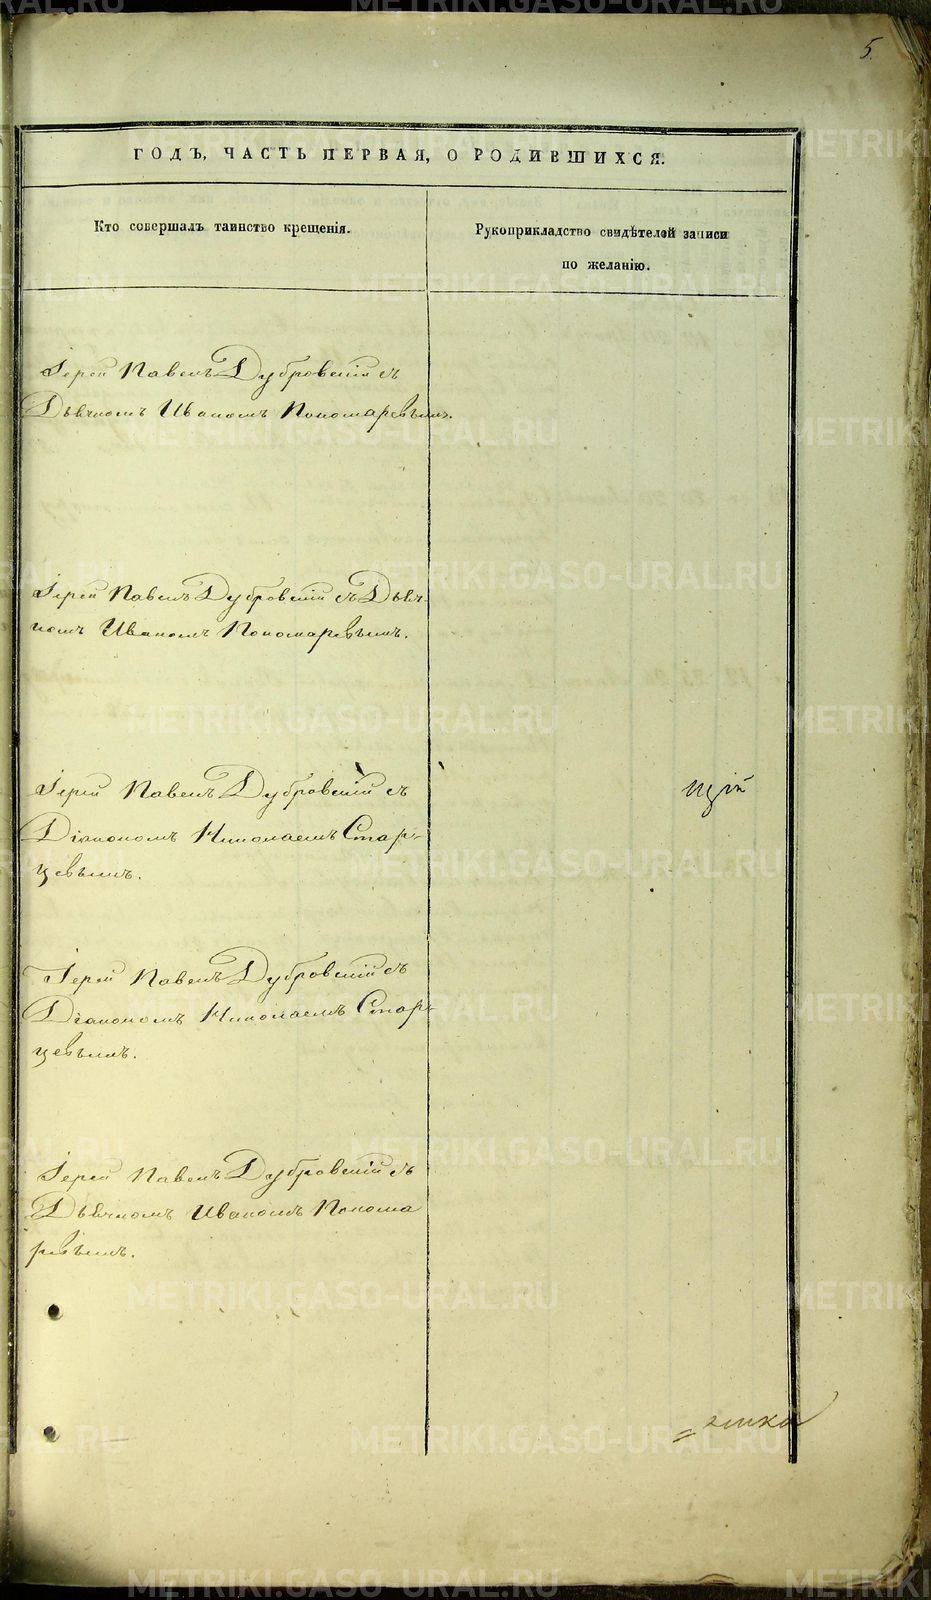 5.
ГОДЪ, ЧАСТЬ ПЕРВАЯ, О РОДИВШИХСЯ.
Кто совершалъ таинство крещенія.
Рукоприкладство свидѣтелей записи
по желанію.
Іерей Павелъ Дубровскій съ
Дьячкомъ Иваномъ Пономаревымъ.
Іерей Павелъ Дубровскій съ Дьяч-
комъ Иваномъ Пономаревымъ.
Іерей Павелъ Дубровскій съ
Діакономъ Николаемъ Стар-
цевымъ.
Іерей Павелъ Дубровскій съ
Діакономъ Николаемъ Стар-
цевымъ.
Іерей Павелъ Дубровскій съ
Дьячкомъ Иваномъ Понома
ревымъ.
METRIKI.GASO-URAL.RU